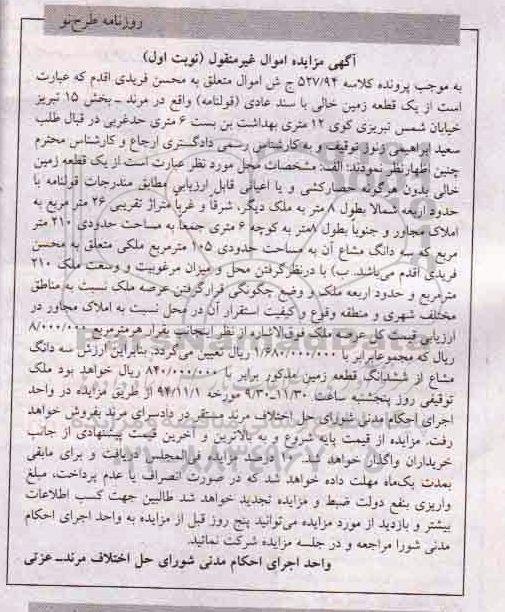 روزنامه طرح‌نو
آگهی مزایده اموال غیرمنقول (نوبت اول)
به موجب پرونده کلاسه ۵۲۷/۹۴ ج ش اموال متعلق به محسن فریدی اقدم که عبارت
است از یک قطعه زمین خالی با سند عادی (قولنامه) واقع در مرند ـ بخش ۱۵ تبریز
خیابان شمس تبریزی کوی ۱۲ متری بهداشت بن بست ۶ متری حدغربی در قبال طلب
سعید ابراهیمی زنوز توقیف و به کارشناس رسمی دادگستری ارجاع و کارشناس محترم
چنین اظهارنظر نمودند: الف: مشخصات محل مورد نظر عبارت است از یک قطعه زمین
خالی بدون هرگونه حصارکشی و یا اعیانی قابل ارزیابی مطابق مندرجات قولنامه با
حدود اربعه شمالا بطول ۸ متر به ملک دیگر، شرقاً و غرباً متراژ تقریبی ۲۶ متر مربع به
املاک مجاور و جنوباً بطول ۸متر به کوچه ۶ متری جمعاً به مساحت حدودی ۲۱۰ متر
مربع که سه دانگ مشاع آن به مساحت حدودی ۱۰۵ مترمربع ملکی متعلق به محسن
فریدی اقدم می‌باشد. ب) با درنظرگرفتن محل و میزان مرغوبیت و وسعت ملک ۲۱۰
مترمربع و حدود اربعه ملک و وضع چگونگی قرارگرفتن عرصه ملک نسبت به مناطق
مختلف شهری و منطقه وقوع و کیفیت استقرار آن در محل نسبت به املاک مجاور در
ارزیابی قیمت کل عرصه ملک فوق‌الاشاره از نظر اینجانب بقرار هرمترمربع ۸/۰۰۰/۰۰۰
ریال که مجموعابرابر با ۱/۶۸۰/۰۰۰/۰۰۰ ریال تعیین می‌گردد. بنابراین ارزش سه دانگ
مشاع از ششدانگ قطعه زمین مذکور برابر با ۸۴۰/۰۰۰/۰۰۰ ریال خواهد بود ملک
توقیفی روز پنجشنبه ساعت ۱۱/۳۰ـ۹/۳۰ مورخه ۹۴/۱۱/۱ از طریق مزایده در واحد
اجرای احکام مدنی شورای حل اختلاف مرند مستقر در دادسرای مرند بفروش خواهد
رفت. مزایده از قیمت پایه شروع و به بالاترین و آخرین قیمت پیشنهادی از جانب
خریداران واگذار خواهد شد. ۱۰ درصد مزایده فی‌المجلس دریافت و برای مابقی
بمدت یک‌ماه مهلت داده خواهد شد که در صورت انصراف یا عدم پرداخت، مبلغ
واریزی بنفع دولت ضبط و مزایده تجدید خواهد شد طالبین جهت کسب اطلاعات
بیشتر و بازدید از مورد مزایده می‌توانید پنج روز قبل از مزایده به واحد اجرای احکام
مدنی شورا مراجعه و در جلسه مزایده شرکت نمائید.
واحد اجرای احکام مدنی شورای حل اختلاف مرندـ عزتی